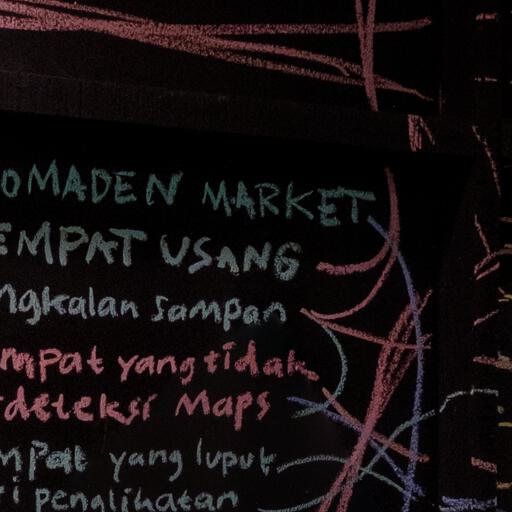 OMADEN MARKET
EMPAT USANG
ngkalan sampan
mpat yang tidak
deteksi Maps
mpat yang luput
ri penglihatan